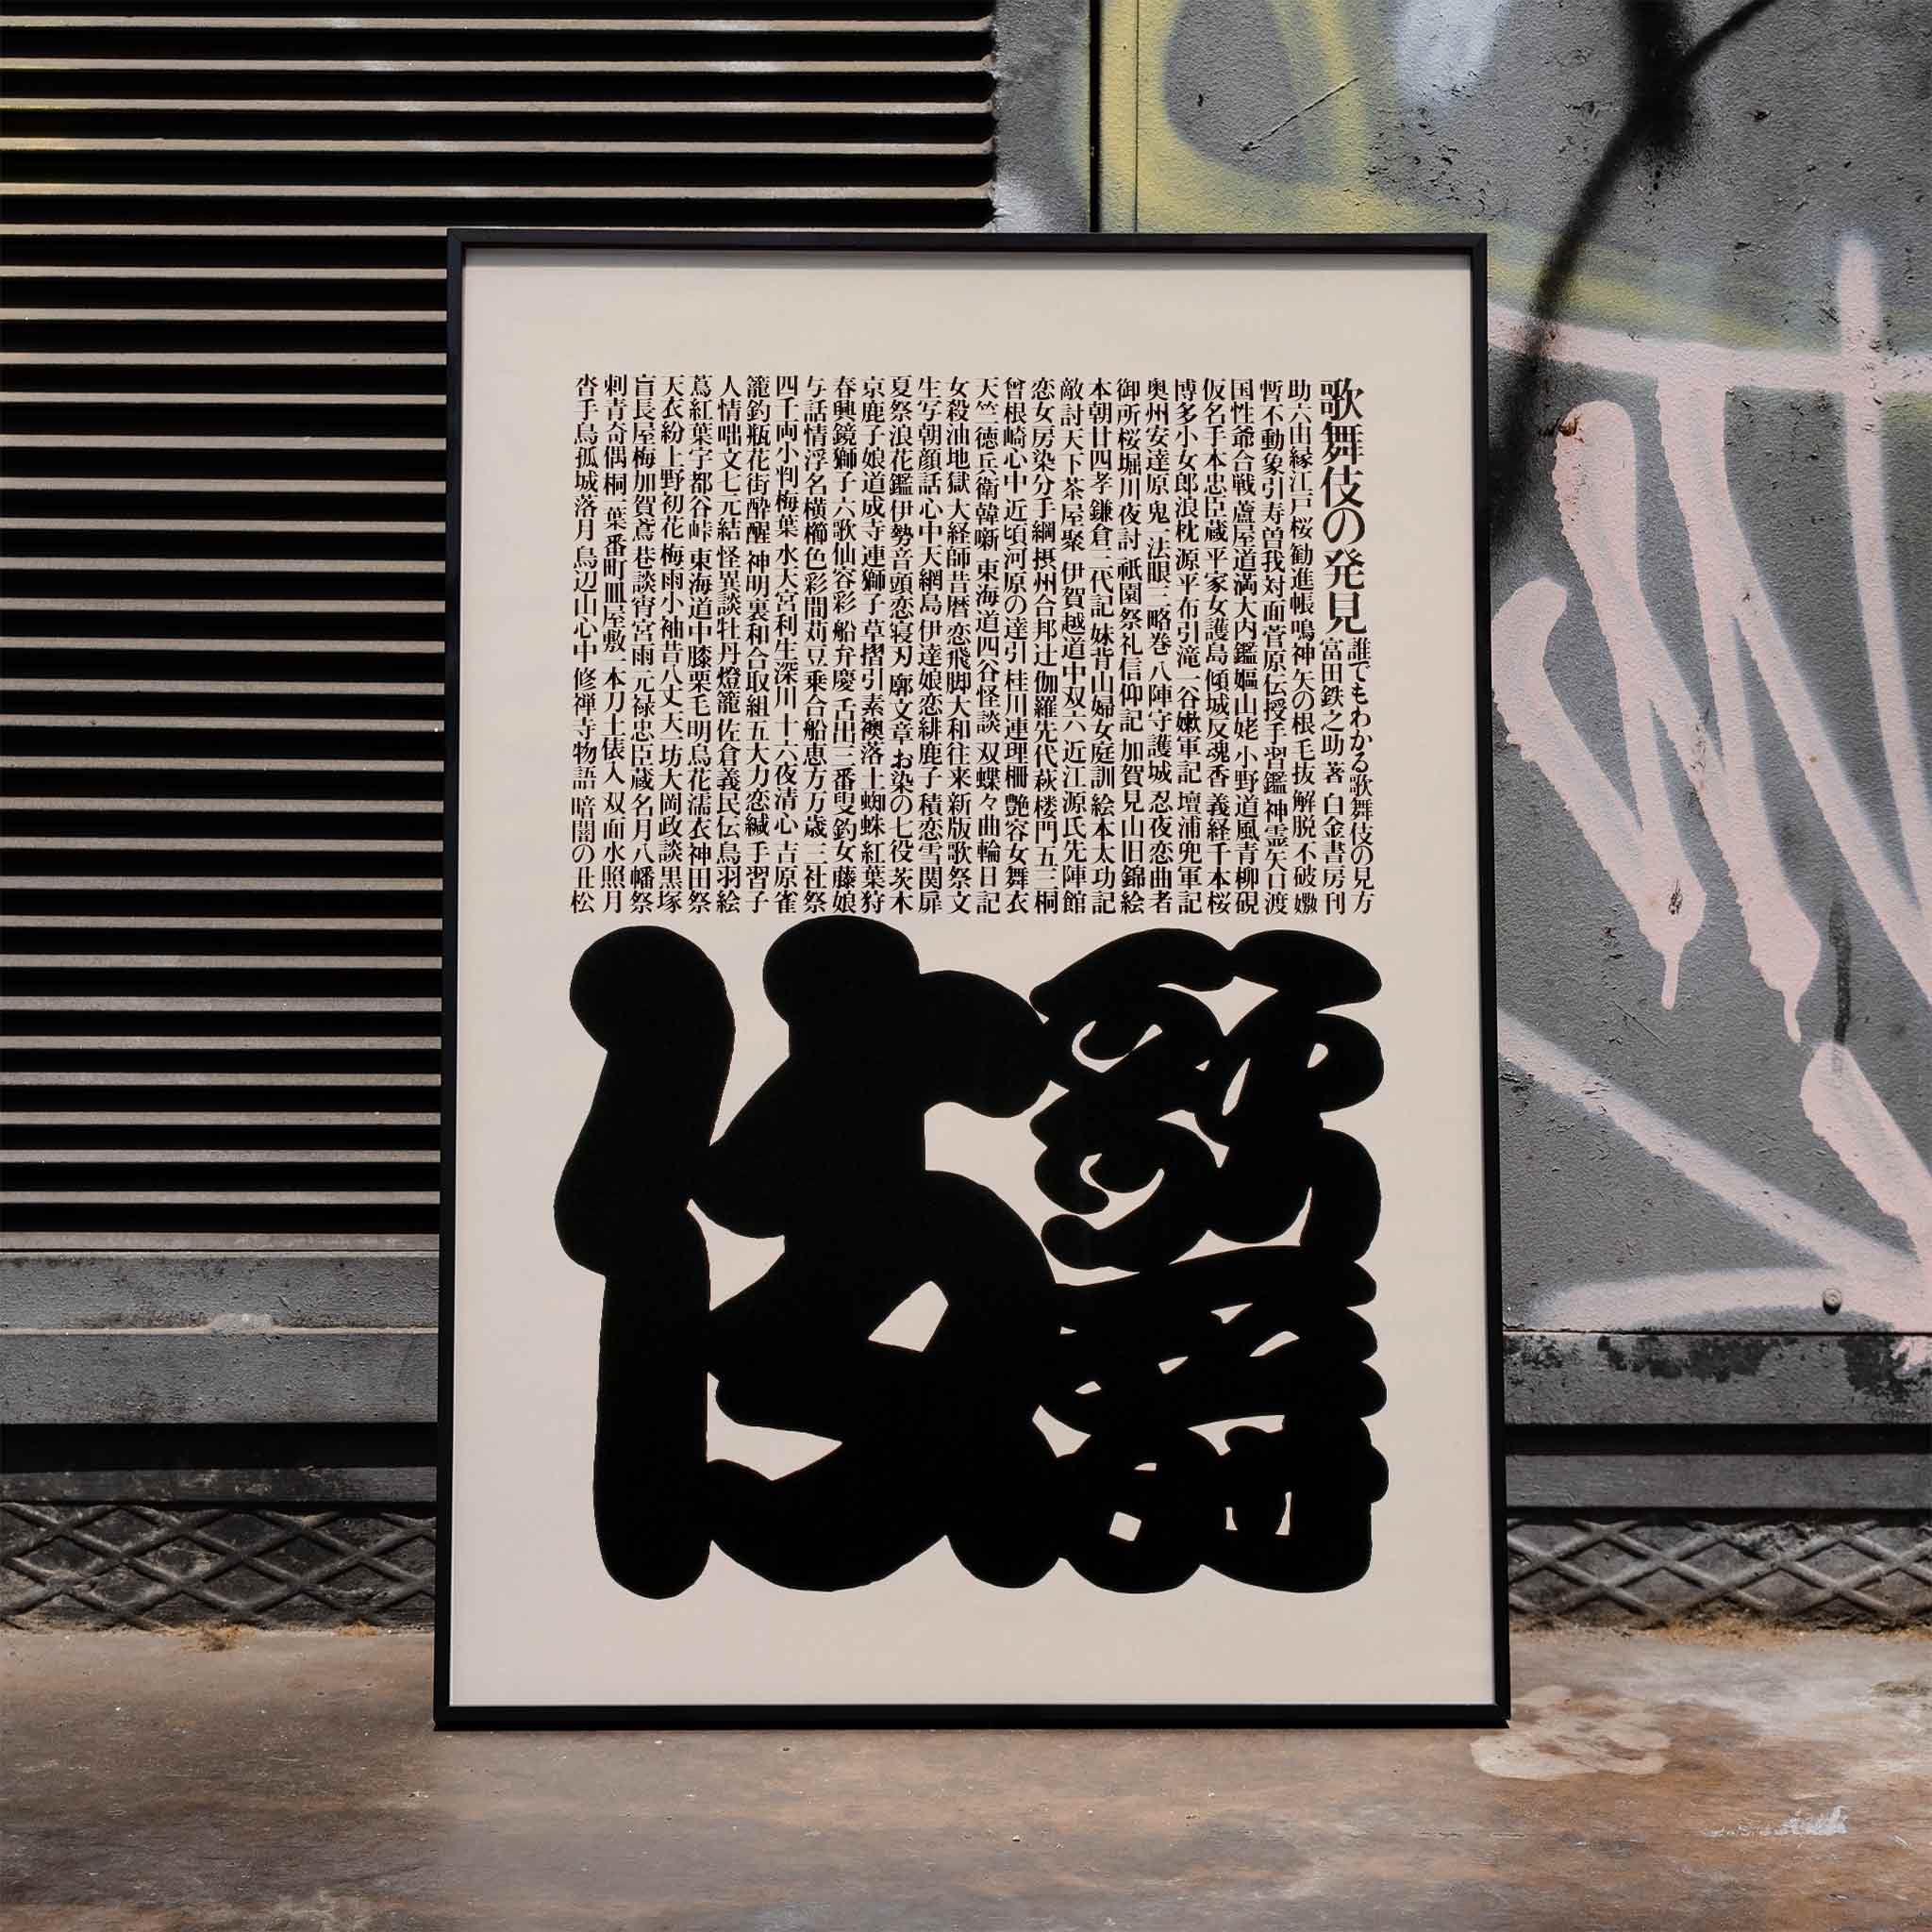 歌舞伎の発見
誰でもわかる歌舞伎の見方
富田鉄之助 著 白金書房刊
助六由縁江戸桜 勧進帳 鳴神 矢の根 毛抜 解脱 不破 嫐
暫 不動 象引 寿曽我対面 菅原伝授手習鑑 神霊矢口渡
国性爺合戦 蘆屋道満大内鑑 嫗山姥 小野道風青柳硯
仮名手本忠臣蔵 平家女護島 傾城反魂香 義経千本桜
博多小女郎浪枕 源平布引滝 一谷嫩軍記 壇浦兜軍記
奥州安達原 鬼一法眼三略巻 八陣守護城 忍夜恋曲者
御所桜堀川夜討 祇園祭礼信仰記 加賀見山旧錦絵
本朝廿四孝 鎌倉三代記 妹背山婦女庭訓 絵本太功記
敵討天下茶屋聚 伊賀越道中双六 近江源氏先陣館
恋女房染分手綱 摂州合邦辻 伽羅先代萩 楼門五三桐
曾根崎心中 近頃河原の達引 桂川連理柵 艶容女舞衣
天竺徳兵衛韓噺 東海道四谷怪談 双蝶々曲輪日記
女殺油地獄 大経師昔暦 恋飛脚大和往来 新版歌祭文
生写朝顔話 心中天網島 伊達娘恋緋鹿子 積恋雪関扉
夏祭浪花鑑 伊勢音頭恋寝刃 廓文章 お染の七役 茨木
京鹿子娘道成寺 連獅子 草摺引 素襖落 土蜘蛛 紅葉狩
春興鏡獅子 六歌仙容彩 船弁慶 舌出三番叟 釣女 藤娘
与話情浮名横櫛 色彩間苅豆 乗合船恵方万歳 三社祭
四千両小判梅葉 水天宮利生深川 十六夜清心 吉原雀
籠釣瓶花街酔醒 神明裏和合取組 五大力恋緘 手習子
人情噺文七元結 怪異談牡丹燈籠 佐倉義民伝 鳥羽絵
蔦紅葉宇都谷峠 東海道中膝栗毛 明烏花濡衣 神田祭
天衣紛上野初花 梅雨小袖昔八丈 天一坊大岡政談 黒塚
盲長屋梅加賀鳶 巷談宵宮雨 元禄忠臣蔵 名月八幡祭
刺青奇偶 桐一葉 番町皿屋敷 一本刀土俵入 双面水照月
沓手鳥孤城落月 鳥辺山心中 修禅寺物語 暗闇の丑松
歌舞
伎